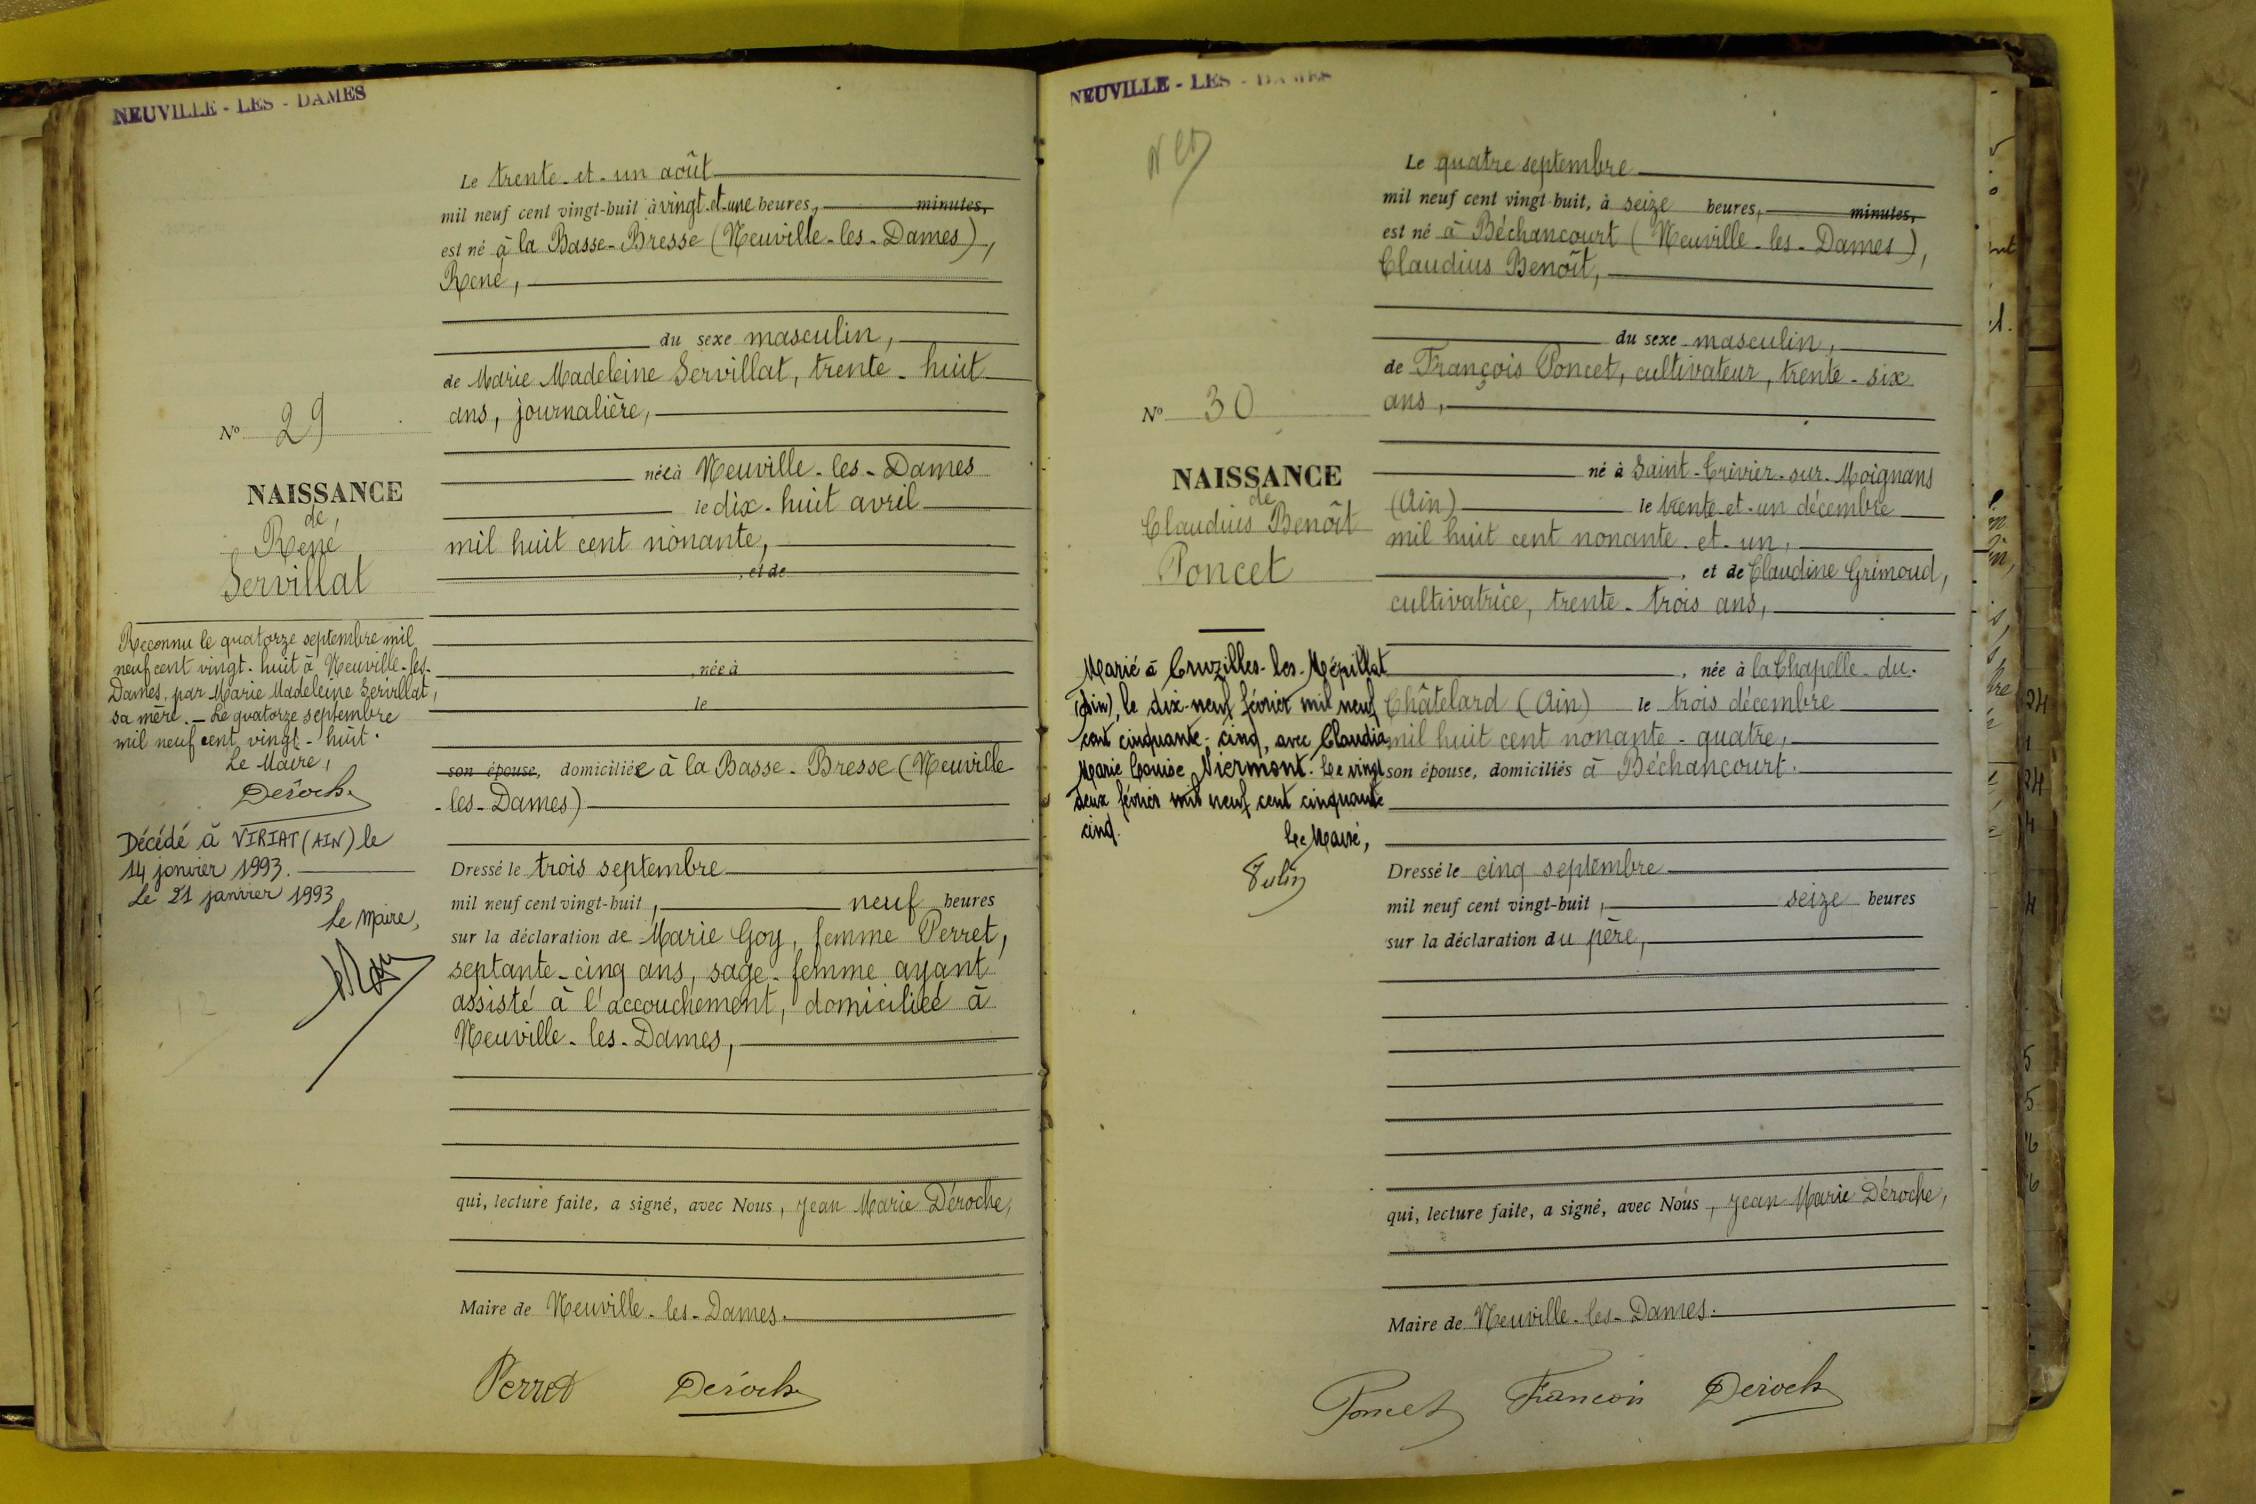 NEUVILLE - LES - DAMES
Le trente-et-un août
mil neuf cent vingt-huit à vingt-et-une heures, minutes,
est né à la Basse-Bresse (Neuville-les-Dames),
René,
du sexe masculin,
de Marie Madeleine Servillat, trente-huit
ans, journalière,
née à Neuville-les-Dames
le dix-huit avril
mil huit cent nonante,
, et de
, née à
le
son épouse, domiciliée à la Basse-Bresse (Neuville
-les-Dames)
Dressé le trois septembre
mil neuf cent vingt-huit, neuf heures
sur la déclaration de Marie Goy, femme Perret,
septante-cinq ans, sage-femme ayant
assisté à l'accouchement, domiciliée à
Neuville-les-Dames,
qui, lecture faite, a signé, avec Nous, Jean Marie Déroche,
Maire de Neuville-les-Dames.
Perret Déroche
No 29
NAISSANCE
de
René
Servillat
Reconnu le quatorze septembre mil
neuf cent vingt-huit à Neuville-les-
Dames, par Marie Madeleine Servillat,
sa mère. — Le quatorze septembre
mil neuf cent vingt-huit.
Le Maire,
Déroche
Décédé à VIRIAT (AIN) le
14 janvier 1993.
Le 21 janvier 1993
Le Maire,
NEUVILLE - LES - DAMES
Le quatre septembre
mil neuf cent vingt-huit, à seize heures, minutes,
est né à Béchancourt (Neuville-les-Dames),
Claudius Benoît,
du sexe masculin,
de François Poncet, cultivateur, trente-six
ans,
né à Saint-Trivier-sur-Moignans
(Ain) le trente-et-un décembre
mil huit cent nonante-et-un,
, et de Claudine Grimoud,
cultivatrice, trente-trois ans,
, née à la Chapelle-du-
Châtelard (Ain) le trois décembre
mil huit cent nonante-quatre,
son épouse, domiciliés à Béchancourt.
Dressé le cinq septembre
mil neuf cent vingt-huit, seize heures
sur la déclaration du père,
qui, lecture faite, a signé, avec Nous, Jean Marie Déroche,
Maire de Neuville-les-Dames.
Poncet François Déroche
No 30
NAISSANCE
de
Claudius Benoît
Poncet
Marié à Cruzilles-les-Mépillat
(Ain), le dix-neuf février mil neuf
cent cinquante-cinq, avec Claudia
Marie Louise Niermont. Le vingt
deux février mil neuf cent cinquante
cinq.
Le Maire,